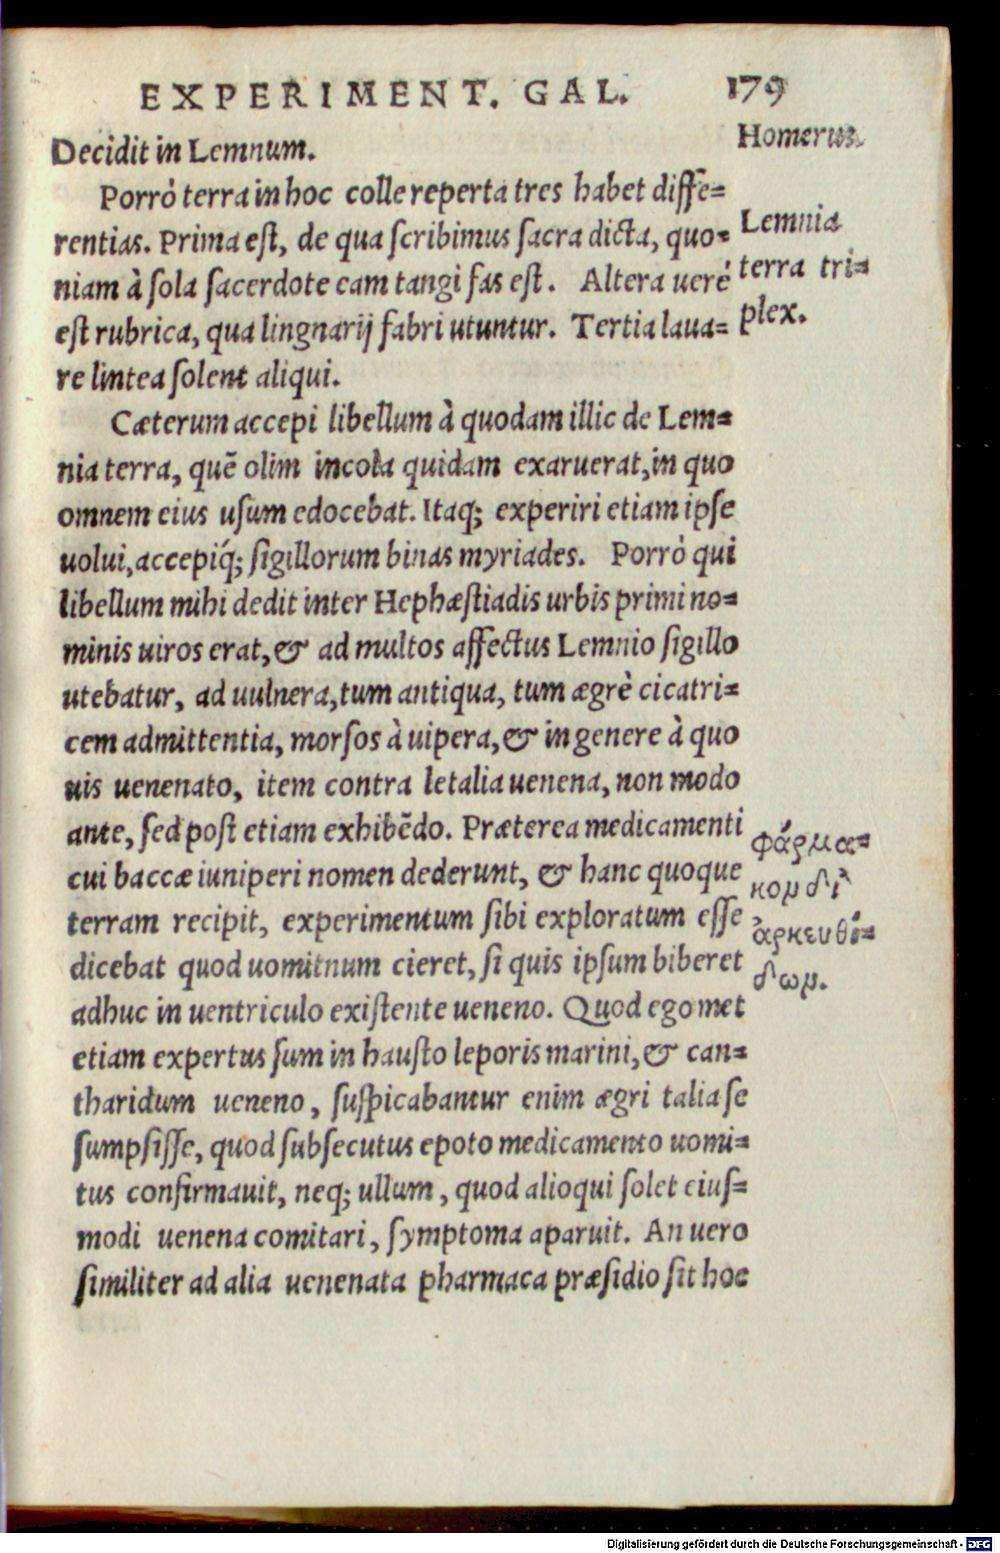 EXPERIMENT. GAL. 179
Decidit in Lemnum.
Homerus.
Porrò terra in hoc colle reperta tres habet diffe=
rentias. Prima est, de qua scribimus sacra dicta, quo=
niam à sola sacerdote eam tangi fas est. Altera uerè
est rubrica, qua lingnarij fabri utuntur. Tertia laua=
re lintea solent aliqui.
Lemnia
terra tri=
plex.
Cæterum accepi libellum à quodam illic de Lem=
nia terra, quē olim incola quidam exaruerat, in quo
omnem eius usum edocebat. Itaq; experiri etiam ipse
uolui, accepiq́; sigillorum binas myriades. Porrò qui
libellum mihi dedit inter Hephæstiadis urbis primi no=
minis uiros erat, & ad multos affectus Lemnio sigillo
utebatur, ad uulnera, tum antiqua, tum ægrè cicatri=
cem admittentia, morsos à uipera, & in genere à quo
uis uenenato, item contra letalia uenena, non modo
ante, sed post etiam exhibēdo. Præterea medicamenti
cui baccæ iuniperi nomen dederunt, & hanc quoque
terram recipit, experimentum sibi exploratum esse
dicebat quod uomitnum cieret, si quis ipsum biberet
adhuc in uentriculo existente ueneno. Quod egomet
etiam expertus sum in hausto leporis marini, & can=
tharidum ueneno, suspicabantur enim ægri talia se
sumpsisse, quod subsecutus epoto medicamento uomi=
tus confirmauit, neq; ullum, quod alioqui solet eius=
modi uenena comitari, symptoma aparuit. An uero
similiter ad alia uenenata pharmaca præsidio sit hoc
φάρμα=
κομ δὶ
ἀρκευθί=
δωμ.
Digitalisierung gefördert durch die Deutsche Forschungsgemeinschaft - DFG